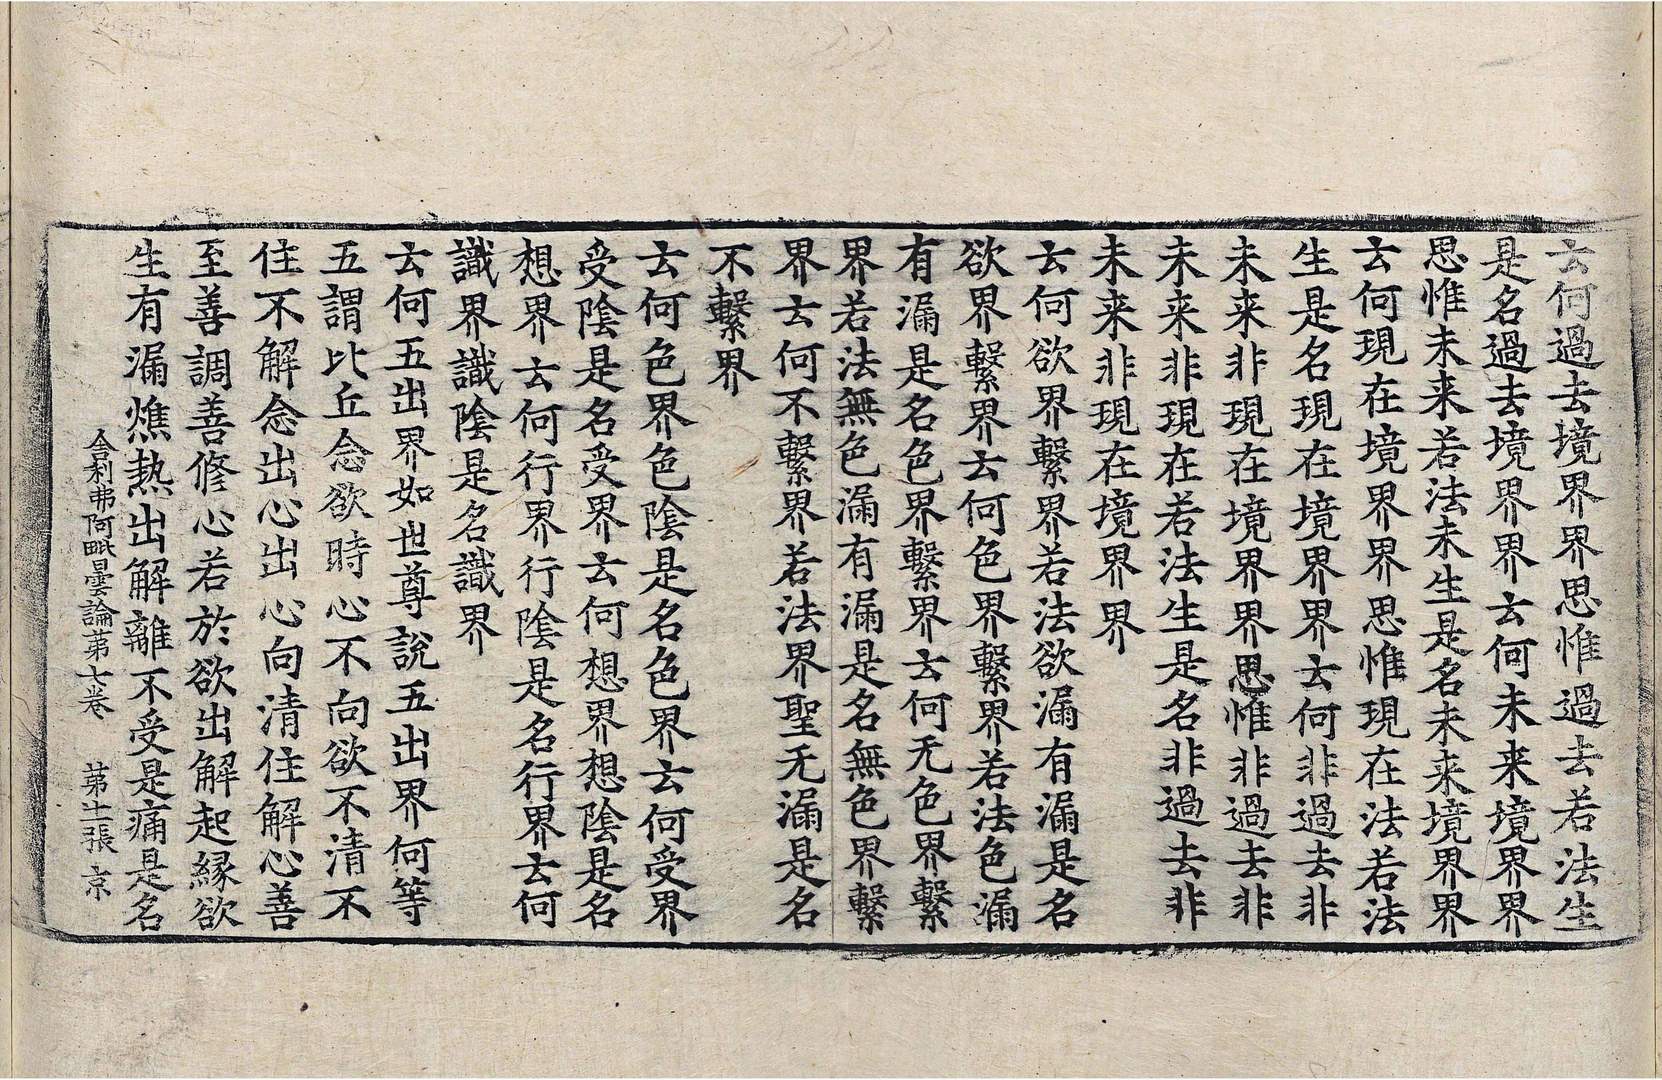 云何過去境界界思惟過去若法生
是名過去境界界云何未来境界界
思惟未来若法未生是名未来境界界
云何現在境界界思惟現在法若法
生是名現在境界界云何非過去非
未来非現在境界界思惟非過去非
未来非現在若法生是名非過去非
未来非現在境界界
云何欲界繫界若法欲漏有漏是名
欲界繫界云何色界繫界若法色漏
有漏是名色界繫界云何无色界繫
界若法無色漏有漏是名無色界繫
界云何不繫界若法界聖无漏是名
不繫界
云何色界色陰是名色界云何受界
受陰是名受界云何想界想陰是名
想界云何行界行陰是名行界云何
識界識陰是名識界
云何五出界如世尊說五出界何等
五謂比丘念欲時心不向欲不清不
住不解念出心出心向清住解心善
至善調善修心若於欲出解起緣欲
生有漏燋熱出解離不受是痛是名
舍利弗阿毗曇論苐七卷 苐張京